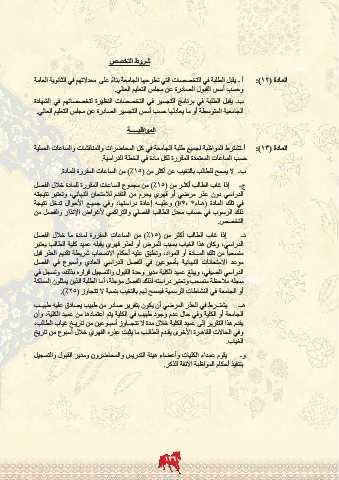 شروط التخصص
المادة (١٢): أ ـ يقبل الطلبة في التخصصات التي تطرحها الجامعة بناءً على معدلاتهم في الثانوية العامة
وحسب أسس القبول الصادرة عن مجلس التعليم العالي.
ب ـ يقبل الطلبة في برنامج التجسير في التخصصات النظيرة لتخصصاتهم في الشهادة
الجامعية المتوسطة أو ما يعادلها حسب أسس التجسير الصادرة عن مجلس التعليم العالي.
المواظبــــة
المادة (١٣): أ. تشترط المواظبة لجميع طلبة الجامعة في كل المحاضرات والمناقشات والساعات العملية
حسب الساعات المعتمدة المقررة لكل مادة في الخطة الدراسية.
ب. لا يسمح للطالب بالتغيب عن أكثر من (١٥٪) من الساعات المقررة للمادة.
ج. إذا غاب الطالب أكثر من (١٥٪) من مجموع الساعات المقررة للمادة خلال الفصل
الدراسي دون عذر مرضي أو قهري يحرم من التقدم للامتحان النهائي، وتعتبر نتيجته
في تلك المادة وعليه إعادة دراستها، وفي جميع الأحوال تدخل نتيجة
ذلك الرسوب في حساب معدل الطالب الفصلي والتراكمي لأغراض الإنذار والفصل من
التخصص.
د. إذا غاب الطالب أكثر من (١٥٪) من الساعات المقررة لمادة ما خلال الفصل
الدراسي، وكان هذا الغياب بسبب المرض أو لعذر قهري يقبله عميد كلية الطالب يعتبر
منسحباً من تلك المادة أو المواد، وتطبق عليه أحكام الانسحاب شريطة تقديم العذر قبل
موعد الامتحانات النهائية بأسبوعين في الفصل الدراسي العادي وأسبوع في الفصل
الدراسي الصيفي، ويبلغ عميد الكلية مدير وحدة القبول والتسجيل قراره بذلك، وتسجل في
سجله ملاحظة منسحب وتعتبر دراسته لذلك الفصل مؤجلة، أما الطلبة الذين يمثلون المملكة
أو الجامعة في النشاطات الرسمية فيسمح لهم بالتغيب بنسبة لا تتجاوز (٢٥٪).
هـ. يشترط في العذر المرضي أن يكون بتقرير صادر من طبيب يصادق عليه طبيب
الجامعة أو الكلية وفي حال عدم وجود طبيب في الكلية يتم اعتمادها من عميد الكلية، وأن
يقدم هذا التقرير إلى عميد الكلية خلال مدة لا تتجاوز أسبوعين من تاريخ غياب الطالب،
وفي الحالات القاهرة الأخرى يقدم الطالب ما يثبت عذره القهري خلال أسبوع من تاريخ
الغياب.
و. يقوم عمداء الكليات وأعضاء هيئة التدريس والمحاضرون ومدير القبول والتسجيل
بتنفيذ أحكام المواظبة الآنفة الذكر.